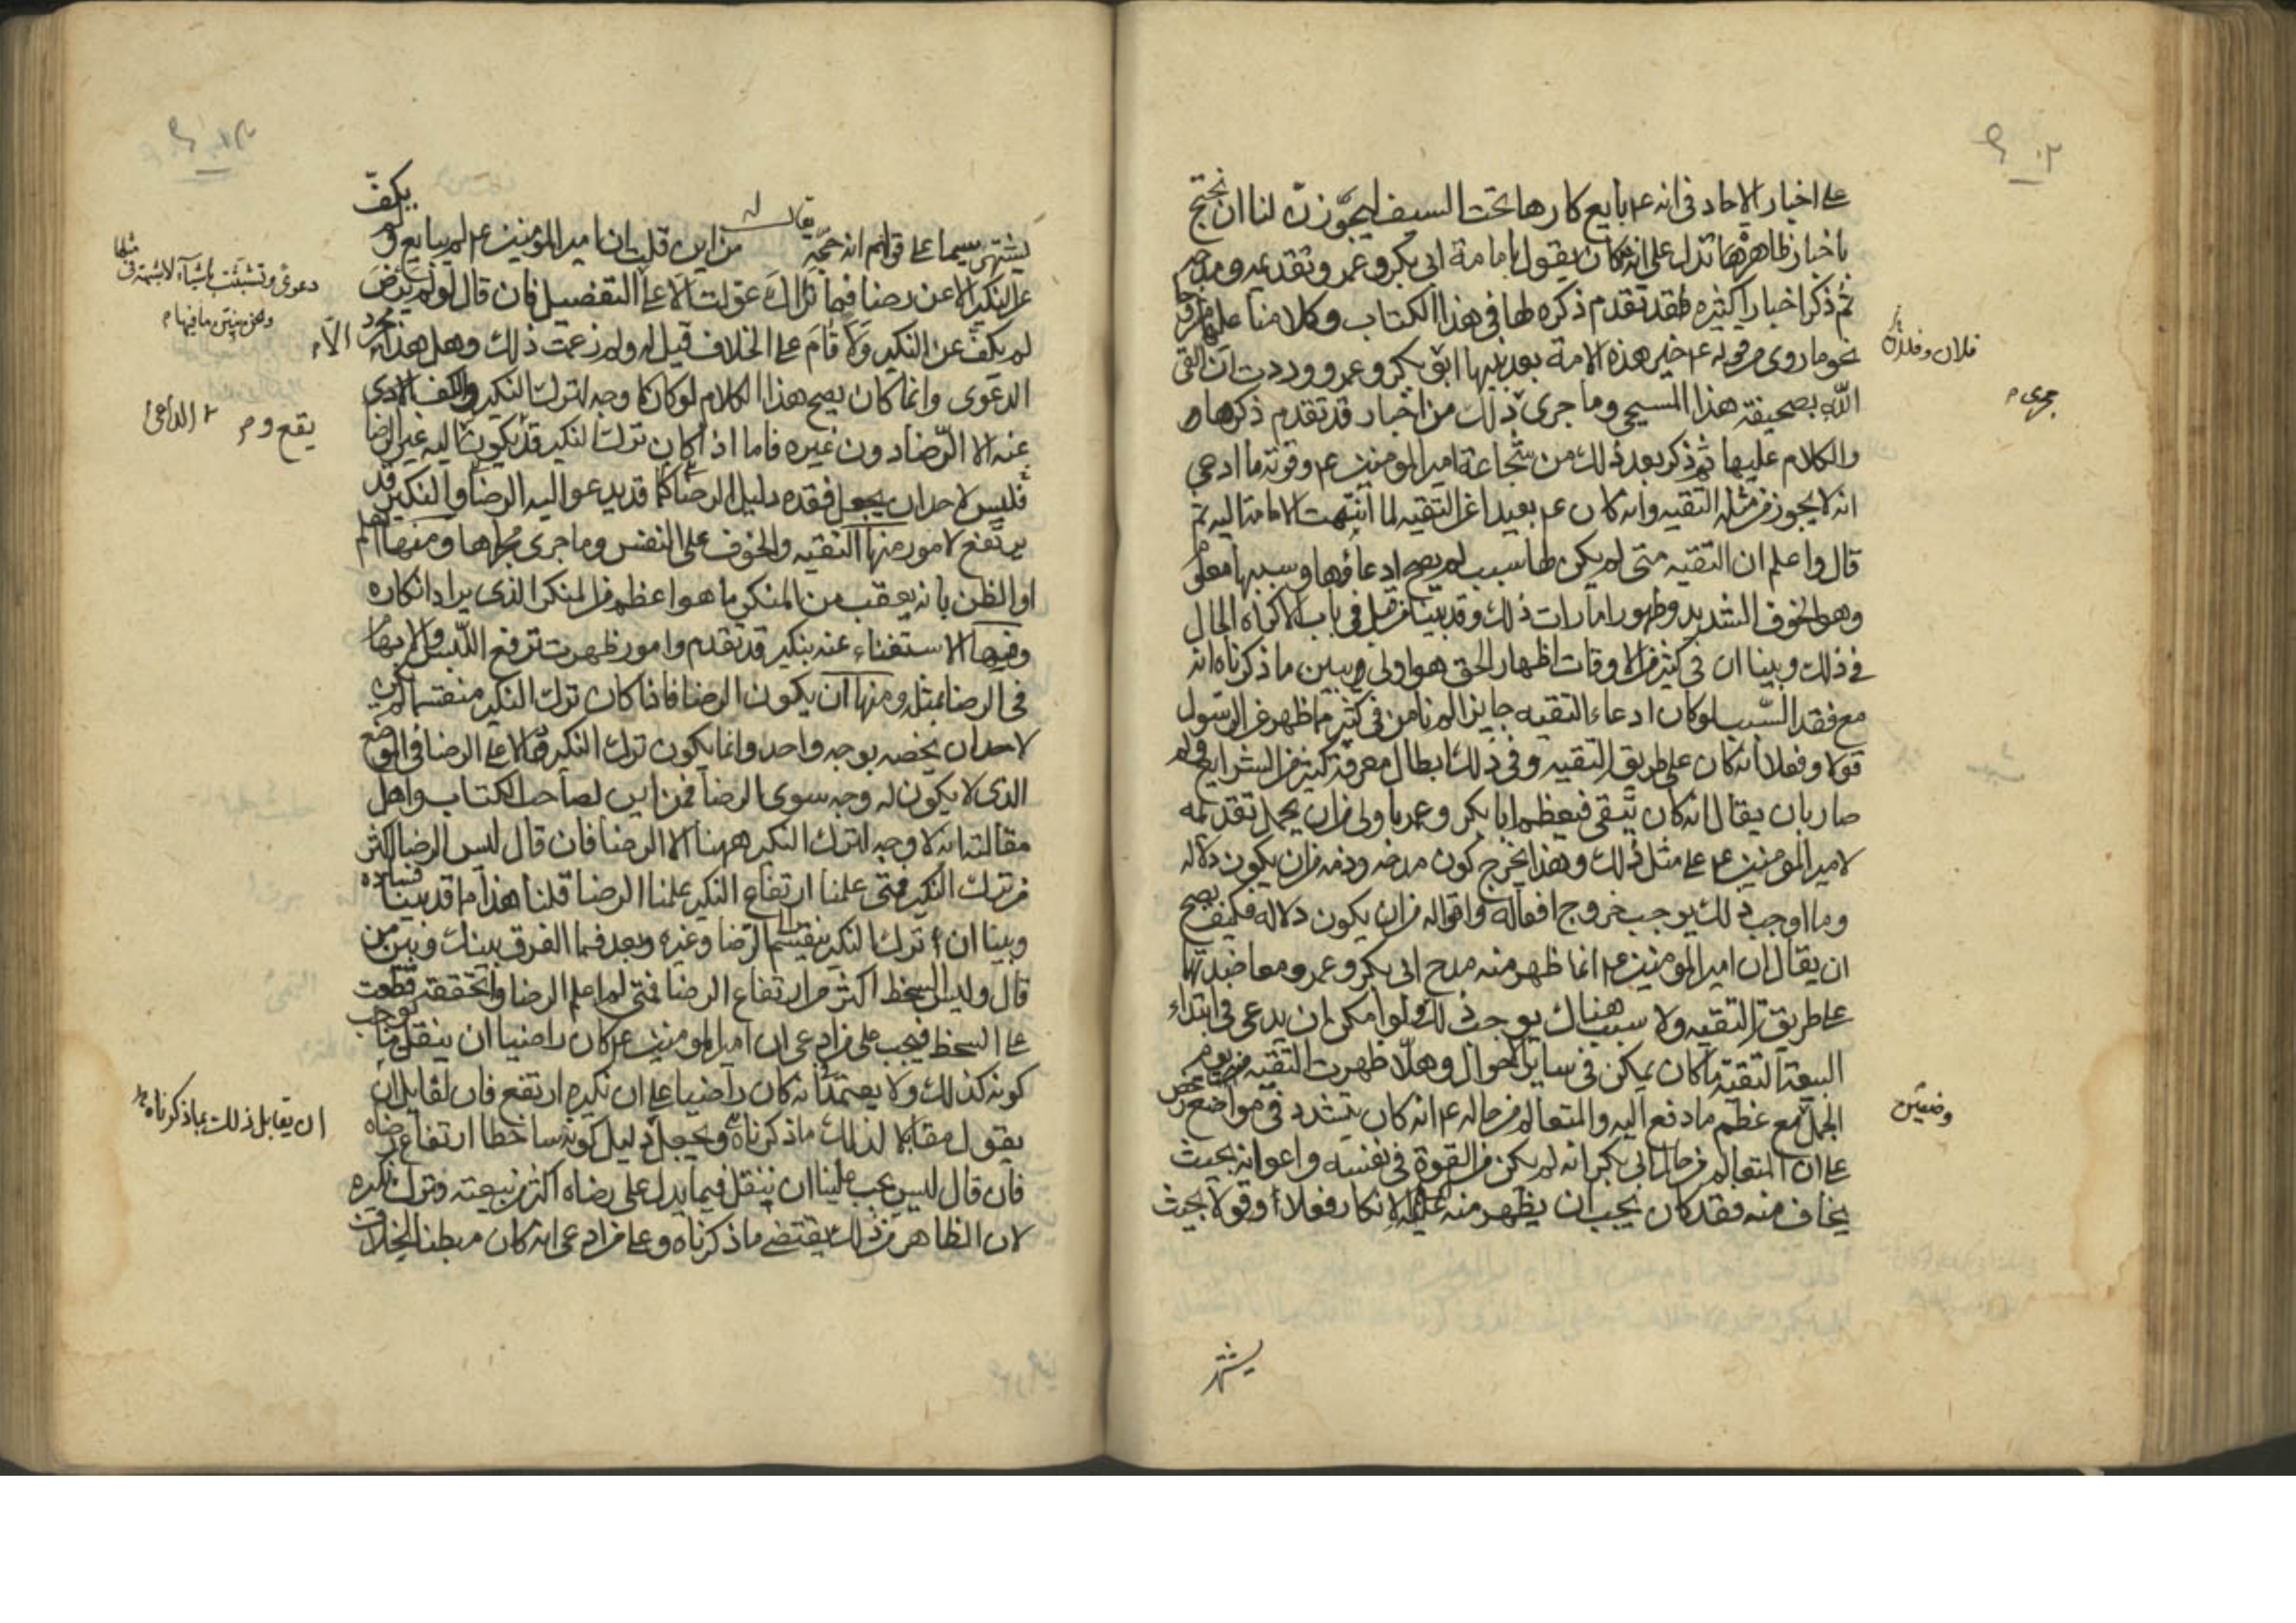 على اخبار الاحاد فى انه ع م بايع كارها تحت السيف ليجوّزنّ لنا ان نحتج
باخبار ظاهرها تدل على انه كان يقول بامامة ابى بكر وعمر وتقديمه
ثم ذكر اخبارا كثيره قد تقدم ذكره لها فى هذا الكتاب وكلامنا عليها
نحو ما روى من قوله ع م خير هذه الامة بعد نبيها ابو بكر وعمر ووددت ان القى
الله بصحيفة هذا المسجى وما جرى ذلك من اخبار قد تقدم ذكرها
والكلام عليها ثم ذكر بعد ذلك من شجاعة امير المومنين ع م وقوته ما ادعى
انه لا يجوز من مثله التقيه وانه كان ع م بعيدا عن التقيه لما انتهت الامامة اليه ثم
قال واعلم ان التقيه متى لم يكن لها سبب لم يصح ادعاؤها وسببها معلوم
وهو الخوف الشديد وظهور امارات ذلك وقد بينا من قبل فى باب الاكراه الحال
فى ذلك وبينا ان فى كثير من الاوقات اظهار الحق هو اولى ويبين ما ذكرناه انه
مع فقد السّبب لو كان ادعاء التقيه جايز الم نامن فى كثير مما ظهر عن الرسول
قولا وفعلا انه كان على طريق التقيه وفى ذلك ابطال معرفة كثير من الشرايع
صار بان يقال انه كان يتّقى فيعظم ابا بكر وعمر باولى من ان يحمل تقدمه
لامير المومنين ع م على مثل ذلك وهذا يخرج كون مدحه وذمه من ان يكون دلاله
وما اوجب ذلك يوجب خروج افعاله واقواله من ان يكون دلاله فكيف يصح
ان يقال ان امير المومنين ع م انما ظهر منه مدح ابى بكر وعمر ومعاضدتها
على طريق التقيه ولا سبب هناك يوجب ذلك ولو امكن ان يدعى فى ابتداء
البيعة التقية ما كان يمكن فى ساير الاحوال وهلّا ظهرت التقيه منه يوم
الجمل مع عظم ما دفع اليه والمتعالم من حاله ع م انه كان يتشدد فى مواضع
على ان المتعالم من حال ابى بكر انه لم يكن من القوة فى نفسه واعوانه بحيث
يخاف منه فقد كان يجب ان يظهر منه ع م الانكار فعلا او قولا بحيث
يشتهر
فلان وفلان
مجرى م
وصفين
يشتهر سيما على قولهم انه حجّة يقال له من اين قلت ان امير المومنين ع م لم يبايع ولم يكفّ
عن النكير الا عن رضا فما نراك عوّلت الا على التفصيل فان قال لو لم يرض
لم يكفّ عن النكير ولاقام على الخلاف قيل له ولم زعمت ذلك وهل هذا الا مجرد
الدعوى وانما كان يصح هذا الكلام لو كان لا وجه لترك النكير والكف
عنه الا الرّضا دون غيره فاما اذا كان ترك النكير قد يكون اليه غير الرضا
فليس لاحد ان يجعل فقده دليل الرضا كما قد يدعو اليه الرضا والنكير قد
يرتفع لامور منها التقيه والخوف على النفس وما جرى مجراها ومنها العلم
او الظن بانه يعقب من المنكر ما هو اعظم من المنكر الذى يراد انكاره
ومنها الاستغناء عنه بنكير قد تقدم وامور ظهرت ترفع اللبس والابهام
فى الرضا بمثله ومنها ان يكون الرضا فاذا كان ترك النكير منقسما لم يكن
لاحد ان يخصه بوجه واحد وانما يكون ترك النكير دالا على الرضا فى الموضع
الذى لا يكون له وجه سوى الرضا فمن اين لصاحب الكتاب واهل
مقالته انه لا وجه لترك النكير ههنا الا الرضا فان قال ليس الرضا اكثر
من ترك النكير فمتى علمنا ارتفاع النكير علمنا الرضا قلنا هذا ما قد بينا فساده
وبينا ان ترك النكير ينقسم الى الرضا وغيره وبعد فما الفرق بينك وبين من
قال وليس السخط اكثر من ارتفاع الرضا فمتى لم اعلم الرضا واتحققه قطعت
على السخط فيجب على من ادعى ان امير المومنين ع م كان راضيا ان ينقل ما يوجب
كونه كذلك ولا يعتمد انه كان راضيا على ان نكيره ارتفع فان لقايل ان
يقول مقابلا لذلك ما ذكرناه ويجعل دليل كونه ساخطا ارتفاع رضاه
فان قال ليس يجب علينا ان ننقل فيما يدل على رضاه اكثر من بيعته وترك نكيره
لان الظاهر من ذلك يقتضى ما ذكرناه وعلى من ادعى انه كان مبطنا بخلاف
دعوى وتشبّثت باشياء لا شبهة فى مثلها
ونحن نبيّن ما فيها م
يقع و م
الداعى
ان يقابل ذلك بما ذكرناه